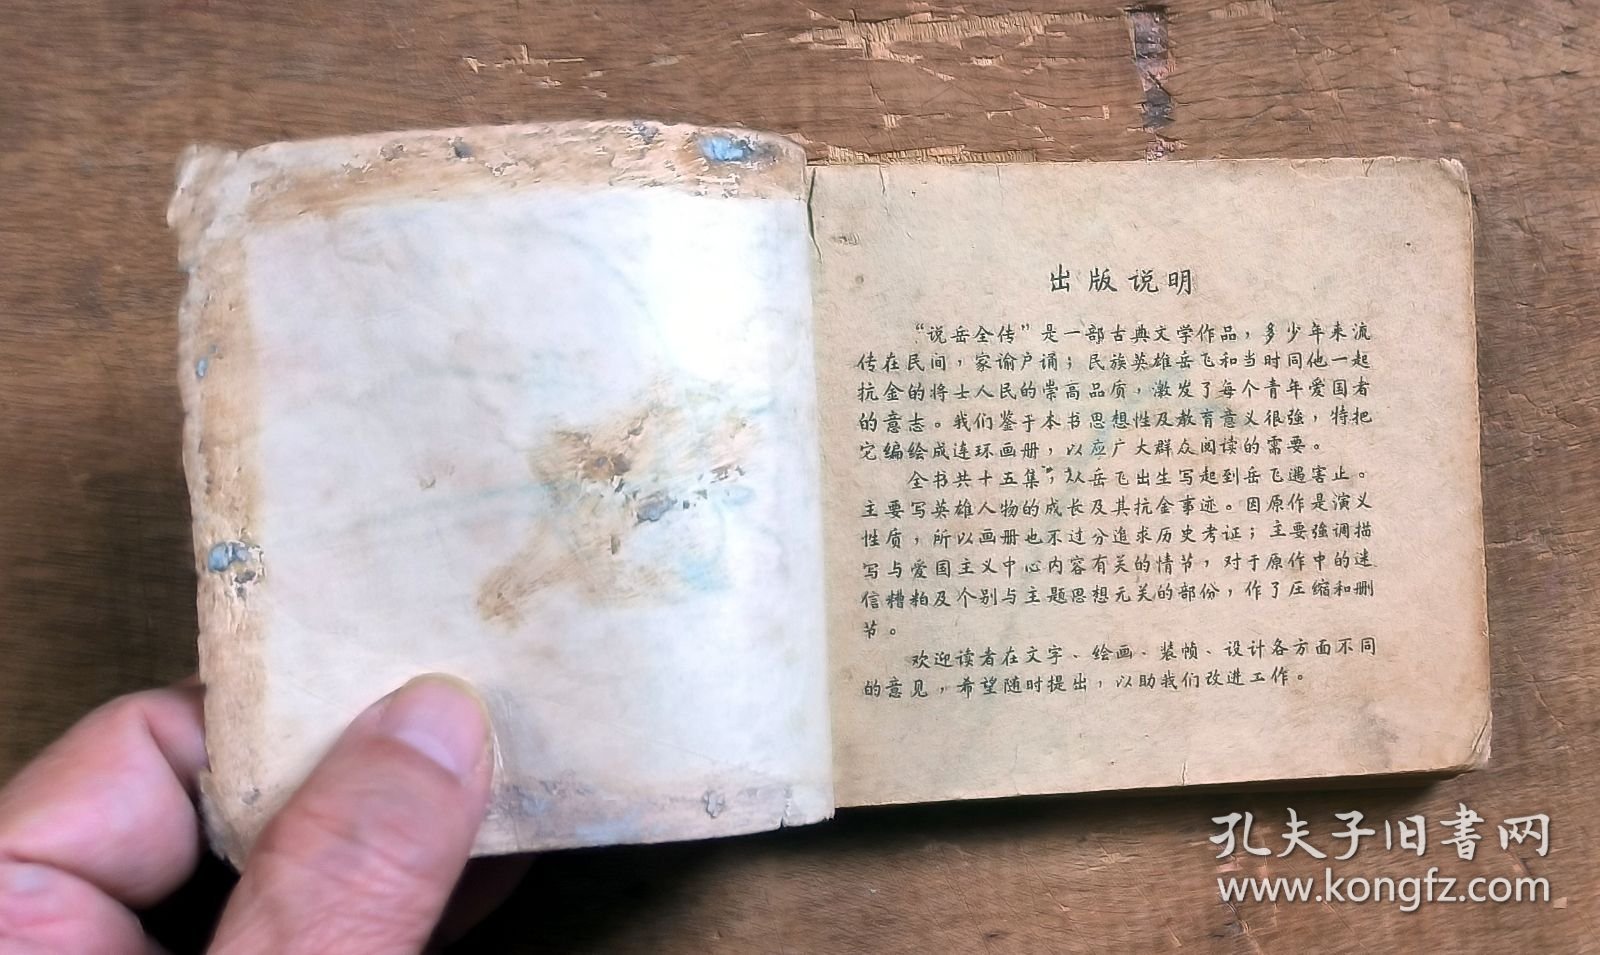 出版说明
“说岳全传”是一部古典文学作品，多少年来流
传在民间，家谕户诵；民族英雄岳飞和当时同他一起
抗金的将士人民的崇高品质，激发了每个青年爱国者
的意志。我们鉴于本书思想性及教育意义很强，特把
它编绘成连环画册，以应广大群众阅读的需要。
全书共十五集，从岳飞出生写起到岳飞遇害止。
主要写英雄人物的成长及其抗金事迹。因原作是演义
性质，所以画册也不过分追求历史考证；主要强调描
写与爱国主义中心内容有关的情节，对于原作中的迷
信糟粕及个别与主题思想无关的部份，作了压缩和删
节。
欢迎读者在文字、绘画、装帧、设计各方面不同
的意见，希望随时提出，以助我们改进工作。
孔夫子旧书网
www.kongfz.com